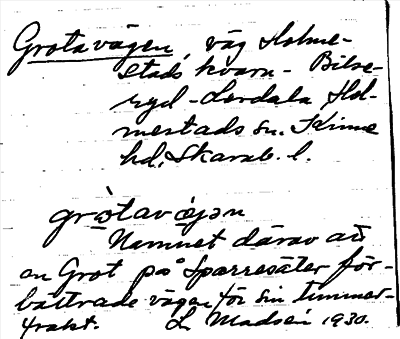 Grotavägen, väg Holme-
stads kvarn - Bilse-
ryd - Lerdala Hol-
mestads sn. Kinne
hd, Skarab. l.
grò̤tavæ̀jən
Namnet därav att
en Grot på Sparresäter för-
bättrade vägen för sin timmer-
frakt. L Madsén 1930.